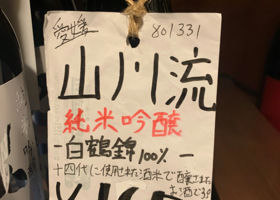 愛媛 801331
山川流
純米吟醸
-白鶴錦100%-
十四代に使用された酒米で醸された
お酒です